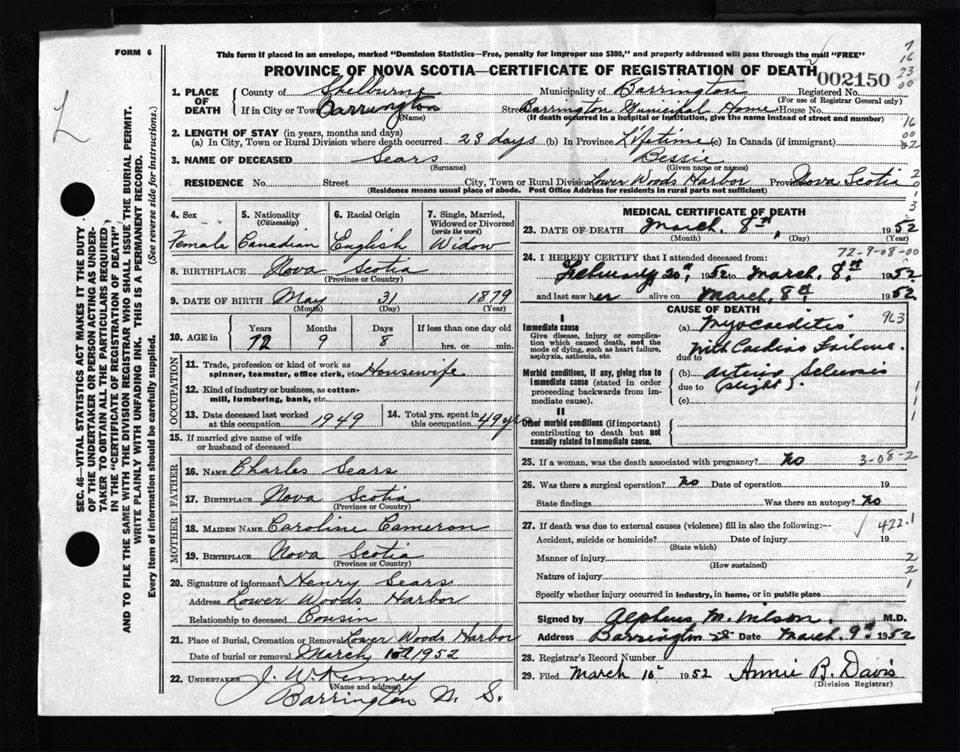 FORM 6
This form if placed in an envelope, marked "Dominion Statistics—Free, penalty for improper use $300," and properly addressed will pass through the mail "FREE"
PROVINCE OF NOVA SCOTIA—CERTIFICATE OF REGISTRATION OF DEATH
002150
7
16
23
00
1. PLACE OF DEATH
County of Shelburne Municipality of Barrington Registered No.
(For use of Registrar General only)
If in City or Town Barrington Street Barrington Municipal Home House No.
(Name) (If death occurred in a hospital or institution, give the name instead of street and number)
16
00
02
2. LENGTH OF STAY (in years, months and days)
(a) In City, Town or Rural Division where death occurred 23 days (b) In Province Lifetime (c) In Canada (if immigrant)
3. NAME OF DECEASED Sears Bessie
(Surname) (Given name or names)
RESIDENCE No. Street City, Town or Rural Division Lower Woods Harbor Province Nova Scotia
(Residence means usual place of abode. Post Office Address for residents in rural parts not sufficient)
4. Sex
Female
5. Nationality
(Citizenship)
Canadian
6. Racial Origin
English
7. Single, Married, Widowed or Divorced
(write the word)
Widow
8. BIRTHPLACE Nova Scotia
(Province or Country)
9. DATE OF BIRTH May 31 1879
(Month) (Day) (Year)
10. AGE in
Years Months Days If less than one day old
72 9 8 hrs. or min.
OCCUPATION
11. Trade, profession or kind of work as spinner, teamster, office clerk, etc. Housewife
12. Kind of industry or business, as cotton-mill, lumbering, bank, etc.
13. Date deceased last worked at this occupation 1949
14. Total yrs. spent in this occupation 49 yrs
15. If married give name of wife or husband of deceased
FATHER
16. NAME Charles Sears
17. BIRTHPLACE Nova Scotia
(Province or Country)
MOTHER
18. MAIDEN NAME Caroline Cameron
19. BIRTHPLACE Nova Scotia
(Province or Country)
20. Signature of informant Henry Sears
Address Lower Woods Harbor
Relationship to deceased Cousin
21. Place of Burial, Cremation or Removal Lower Woods Harbor
Date of burial or removal March 1952
22. UNDERTAKER J. W. Kenney
(Name and address)
Barrington N. S.
MEDICAL CERTIFICATE OF DEATH
23. DATE OF DEATH March. 8th, 1952
(Month) (Day) (Year)
72-9-08-00
24. I HEREBY CERTIFY that I attended deceased from:
February 20th 1952 to March, 8th 1952
and last saw her alive on March, 8th 1952
CAUSE OF DEATH
963
I
Immediate cause
Give disease, injury or complication which caused death, not the mode of dying, such as heart failure, asphyxia, asthenia, etc.
(a) Myocarditis
With Cardiac Failure.
due to
Morbid conditions, if any, giving rise to immediate cause (stated in order proceeding backwards from immediate cause).
(b) Arterio Sclerosis
due to (slight).
(c)
II
Other morbid conditions (if important) contributing to death but not causally related to immediate cause.
25. If a woman, was the death associated with pregnancy? No
3-08-2
26. Was there a surgical operation? No Date of operation 19
State findings Was there an autopsy? No
27. If death was due to external causes (violence) fill in also the following:—
422.1
Accident, suicide or homicide? Date of injury 19
(State which)
Manner of injury
(How sustained)
Nature of injury
Specify whether injury occurred in industry, in home, or in public place
Signed by Alpheus M. Wilson. M.D.
Address Barrington Date March. 9th 1952
28. Registrar's Record Number
29. Filed March 10 1952 Annie B. Davis
(Division Registrar)
SEC. 46—VITAL STATISTICS ACT MAKES IT THE DUTY
OF THE UNDERTAKER OR PERSON ACTING AS UNDER-
TAKER TO OBTAIN ALL THE PARTICULARS REQUIRED
IN THE "CERTIFICATE OF REGISTRATION OF DEATH"
AND TO FILE THE SAME WITH THE DIVISION REGISTRAR WHO SHALL ISSUE THE BURIAL PERMIT.
WRITE PLAINLY WITH UNFADING INK. THIS IS A PERMANENT RECORD.
Every item of information should be carefully supplied. (See reverse side for instructions.)